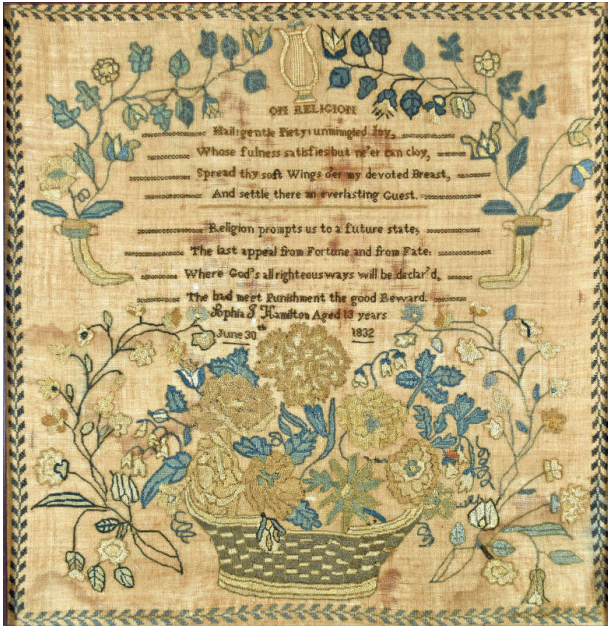 ON RELIGION
Hail gentle Piety unmingled Joy,
Whose fulness satisfies but ne'er can cloy,
Spread thy soft Wings o'er my devoted Breast,
And settle there an everlasting Guest.
Religion prompts us to a future state,
The last appeal from Fortune and from Fate:
Where God's all righteous ways will be declar'd,
The bad meet Punishment the good Reward.
Sophia J Hamilton Aged 13 years
June 30th 1832